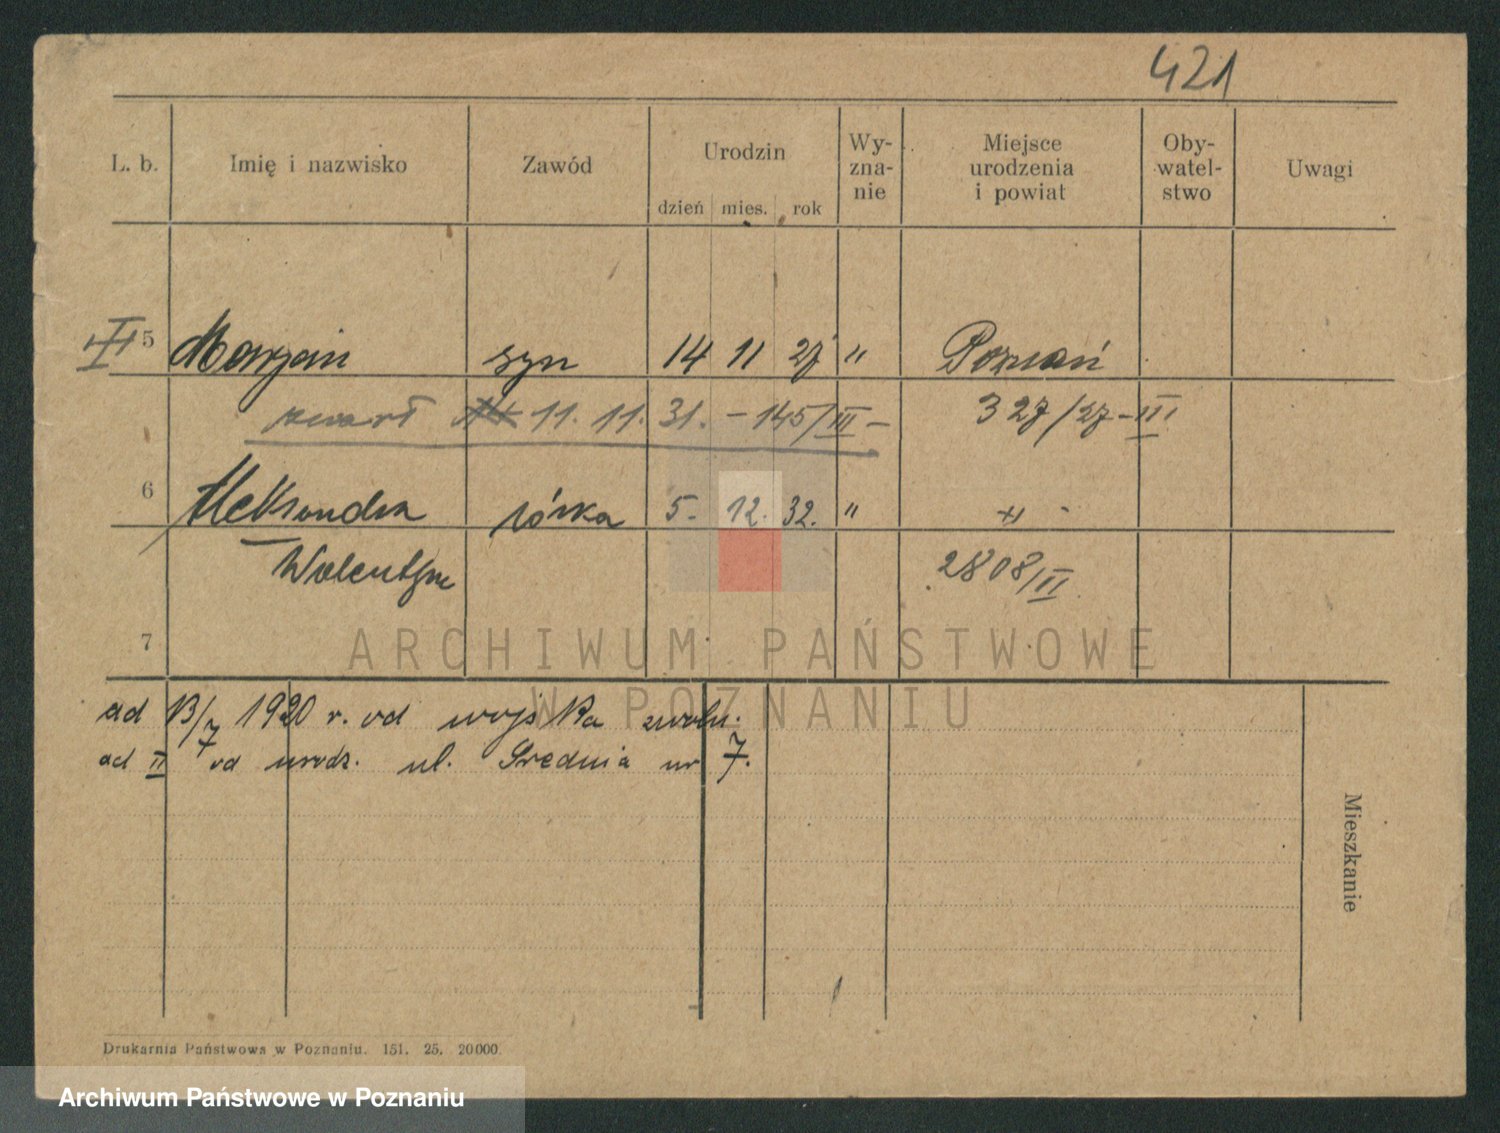 421
L. b. Imię i nazwisko Zawód Urodzin dzień mies. rok Wy-zna-nie Miejsce urodzenia i powiat Oby-watel-stwo Uwagi
5 Marjan syn 14 11 27 " Poznań
zmarł 11. 11. 31. – 145/III – 327/27 – III
6 Aleksandra córka 5. 12. 32. "
Walentyna 2808/II
7
ARCHIWUM PAŃSTWOWE
W POZNANIU
ad 13/7 1920 r. od wojska zwoln.
ad II od urodz. ul. Średnia nr 7.
Mieszkanie
Drukarnia Państwowa w Poznaniu. 151. 25. 20000.
Archiwum Państwowe w Poznaniu